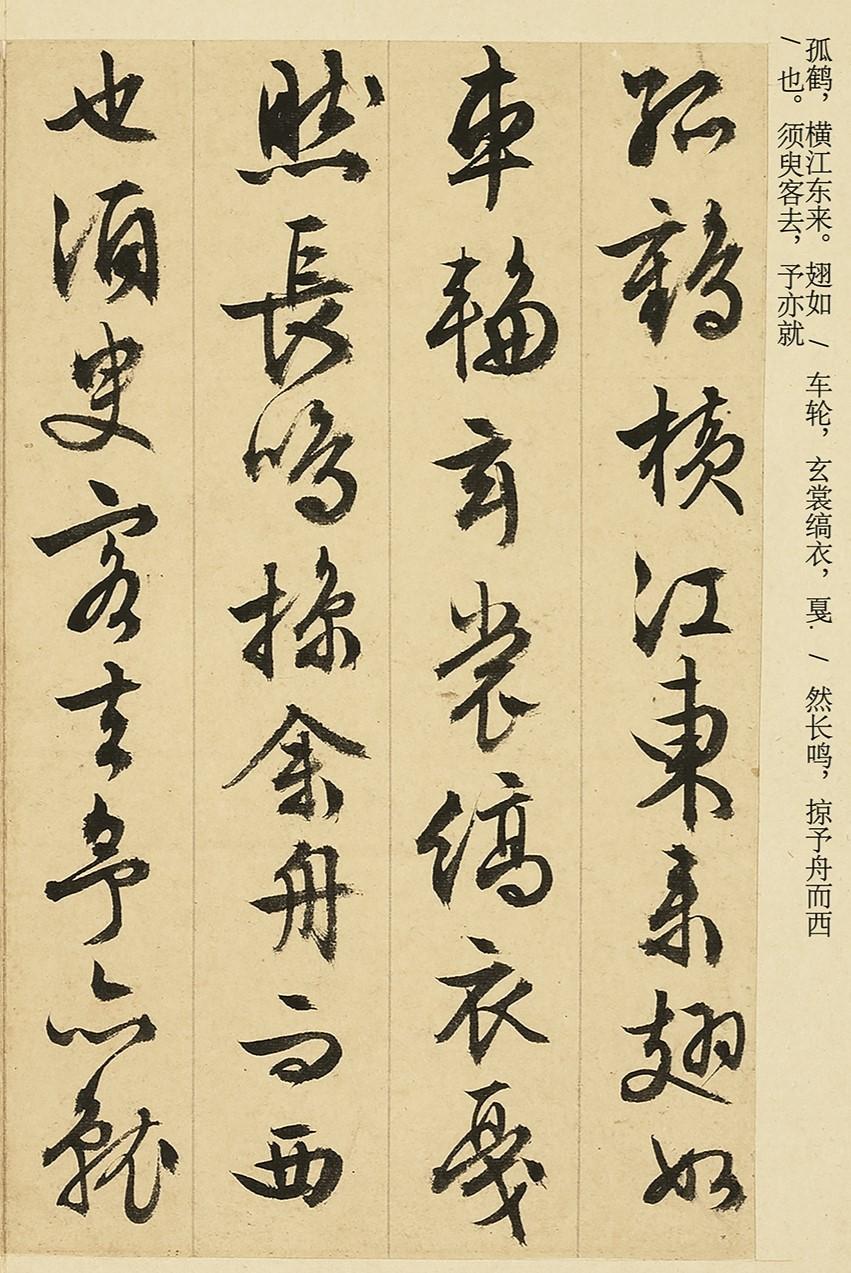 孤鹤，横江东来。翅如/车轮，玄裳缟衣，戛·/然长鸣，掠予舟而西
/也。须臾客去，予亦就
孤鶴横江東来翅如
車輪玄裳縞衣戛
然長鳴掠余舟而西
也須臾客去予亦就